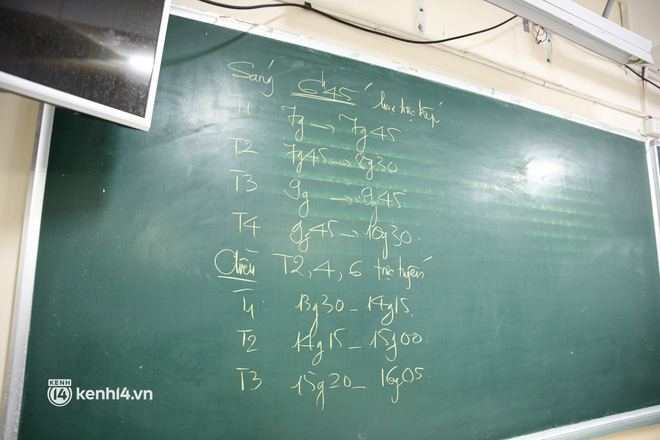 Sáng 6h45 học trực tiếp
T1 7g → 7g45
T2 7g45 → 8g30
T3 9g → 9g45
T4 9g45 → 10g30.
Chiều T2, 4, 6 trực tuyến
T1 13g30 - 14g15.
T2 14g15 - 15g00.
T3 15g20 - 16g05.
KÊNH
14 kenh14.vn